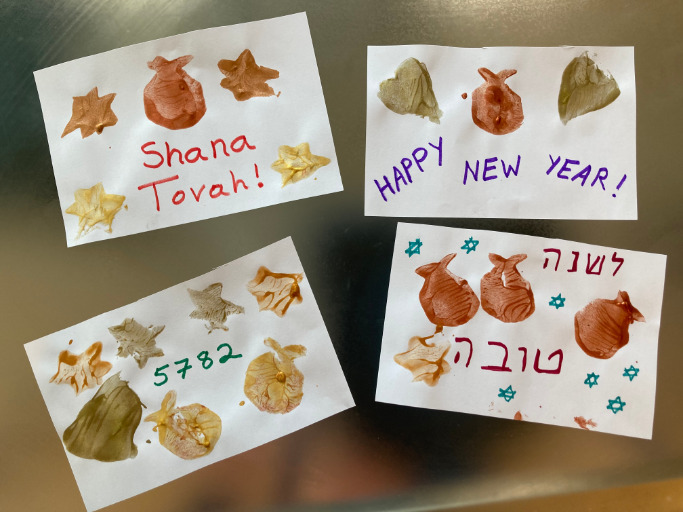 Shana
Tovah!
HAPPY NEW YEAR!
5782
לשנה
טובה